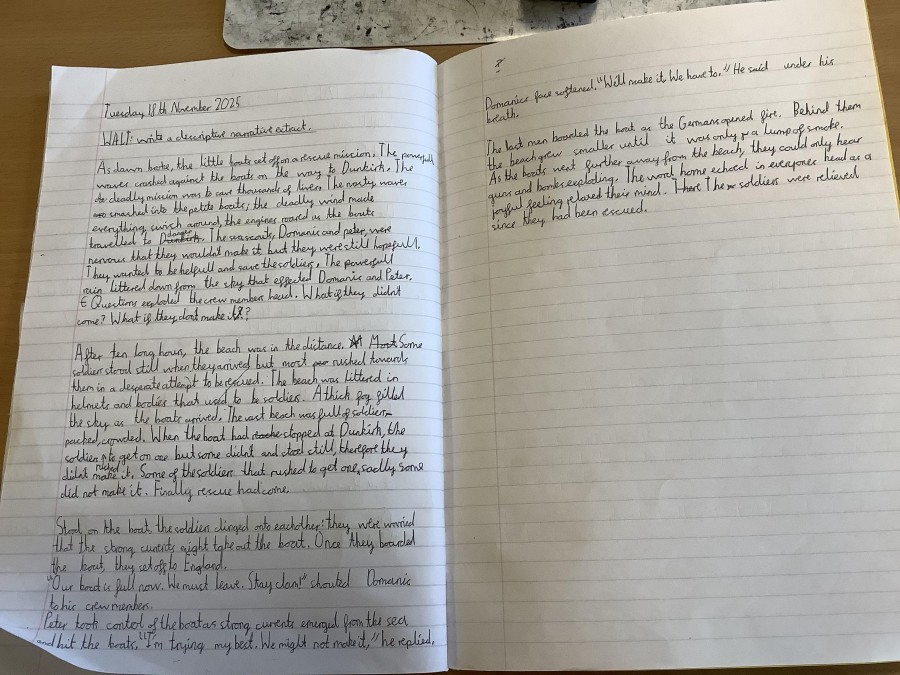 Tuesday 18th November 2025
WALT: write a descriptive narrative extract.
As dawn broke, the little boats set off on a rescue mission. The powerfull
waves crashed against the boats on the way to Dunkirk. The
deadly mission was to save thousands of lives. The nasty waves
smashed into the petite boats; the deadly wind made
everything swish around, the engines roared as the boats
travelled to danger. The seascouts, Domanic and peter, were
nervous that they wouldnt make it but they were still hopefull.
They wanted to be helpfull and save the soldiers. The powerfull
rain littered down from the sky that effected Domanic and Peter.
Questions exploded the crew members head. What if they didnt
come? What if they dont make it?
After ten long hours, the beach was in the distance. Some
soldiers stood still when they arrived but most rushed towards
them in a desperate attempt to be rescued. The beach was littered in
helmets and bodies that used to be soldiers. A thick fog filled
the sky as the boats arrived. The vast beach was full of soldiers-
packed, crowded. When the boat had stopped at Dunkirk, the
soldiers rushed to get on one but some didnt and stood still, therefore they
didnt make it. Some of the soldiers that rushed to get one, sadly some
did not make it. Finally rescue had come.
Stood on the boat, the soldiers clinged onto eachother: they were worried
that the strong currents might take out the boat. Once they boarded
the boat, they set off to England.
"Our boat is full now. We must leave. Stay clam!" shouted Domanic
to his crew member.
Peter took control of the boat as strong currents emerged from the sea
and hit the boats. "I'm trying my best. We might not make it," he replied.
?
Domanics face softened. "We'll make it. We have to." He said under his
breath.
The last men boarded the boat as the Germans opened fire. Behind them
the beach grew smaller until it was only a lump of smoke.
As the boats went further away from the beach, they could only hear
guns and bombs exploding. The word home echoed in everyones head as a
joyful feeling relaxed their mind. The soldiers were relieved
since they had been rescued.